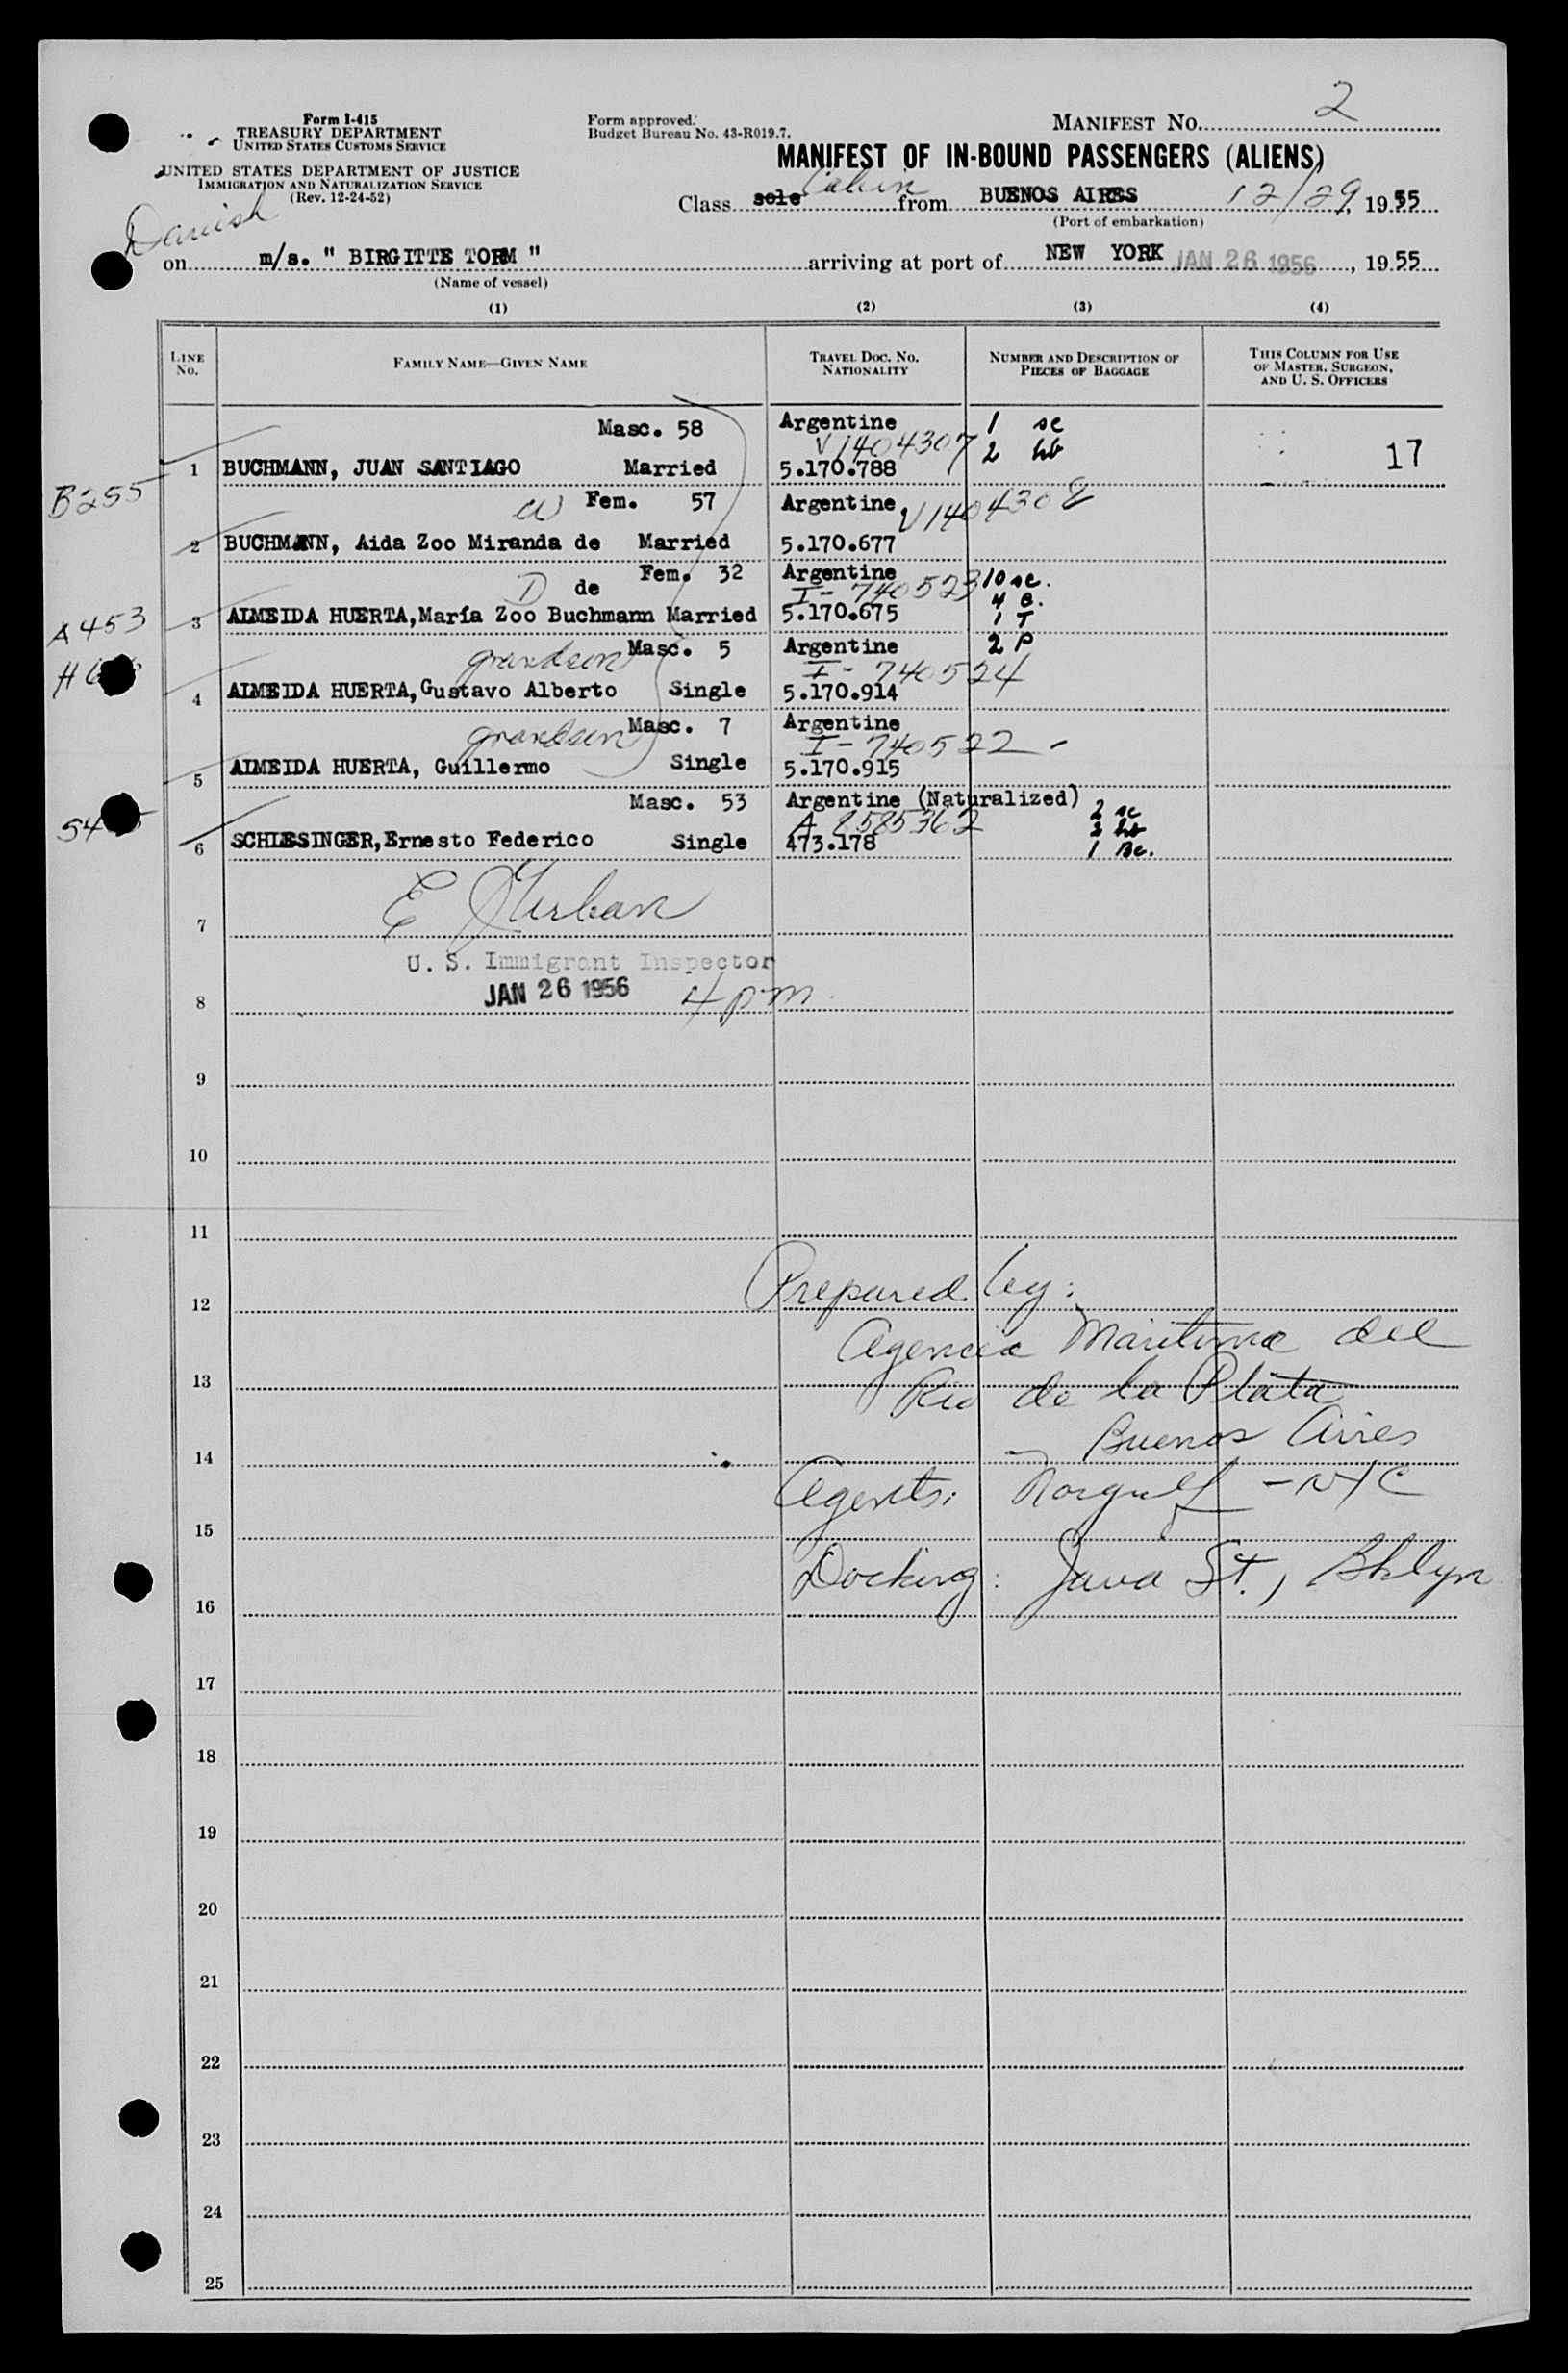 2
Form I-415
TREASURY DEPARTMENT
UNITED STATES CUSTOMS SERVICE
Form approved.
Budget Bureau No. 43-R019.7.
MANIFEST NO.
UNITED STATES DEPARTMENT OF JUSTICE
IMMIGRATION AND NATURALIZATION SERVICE
(Rev. 12-24-52)
MANIFEST OF IN-BOUND PASSENGERS (ALIENS)
Danish
Class sole Cabin from BUENOS AIRES 12/29, 1955
(Port of embarkation)
on m/s. " BIRGITTE TORM " arriving at port of NEW YORK JAN 26 1956, 1955
(Name of vessel)
(1) (2) (3) (4)
LINE No.
FAMILY NAME—GIVEN NAME
TRAVEL DOC. NO. NATIONALITY
NUMBER AND DESCRIPTION OF PIECES OF BAGGAGE
THIS COLUMN FOR USE OF MASTER, SURGEON, AND U. S. OFFICERS
Masc. 58 Argentine 1 sc
V1404307 2 hb 17
1 BUCHMANN, JUAN SANTIAGO Married 5.170.788
B255
W Fem. 57 Argentine V1404308
2 BUCHMANN, Aida Zoo Miranda de Married 5.170.677
D de Fem. 32 Argentine 10 sc.
I-740523 4 B.
A453
3 ALMEIDA HUERTA, María Zoo Buchmann Married 5.170.675 1 T
grandson Masc. 5 Argentine 2 P
I-740524
4 ALMEIDA HUERTA, Gustavo Alberto Single 5.170.914
grandson Masc. 7 Argentine
I-740522 -
5 ALMEIDA HUERTA, Guillermo Single 5.170.915
Masc. 53 Argentine (Naturalized) 2 sc
A 8585362 2 hb
6 SCHLESINGER, Ernesto Federico Single 473.178 1 Bc.
7
U. S. Immigrant Inspector
JAN 26 1956 4 pm
8
9
10
11
12 Prepared by:
Agencia Maritima del
13 Rio de la Plata
Buenos Aires
14
Agents: Norgulf - NYC
15
Docking: Java St., Bklyn
16
17
18
19
20
21
22
23
24
25